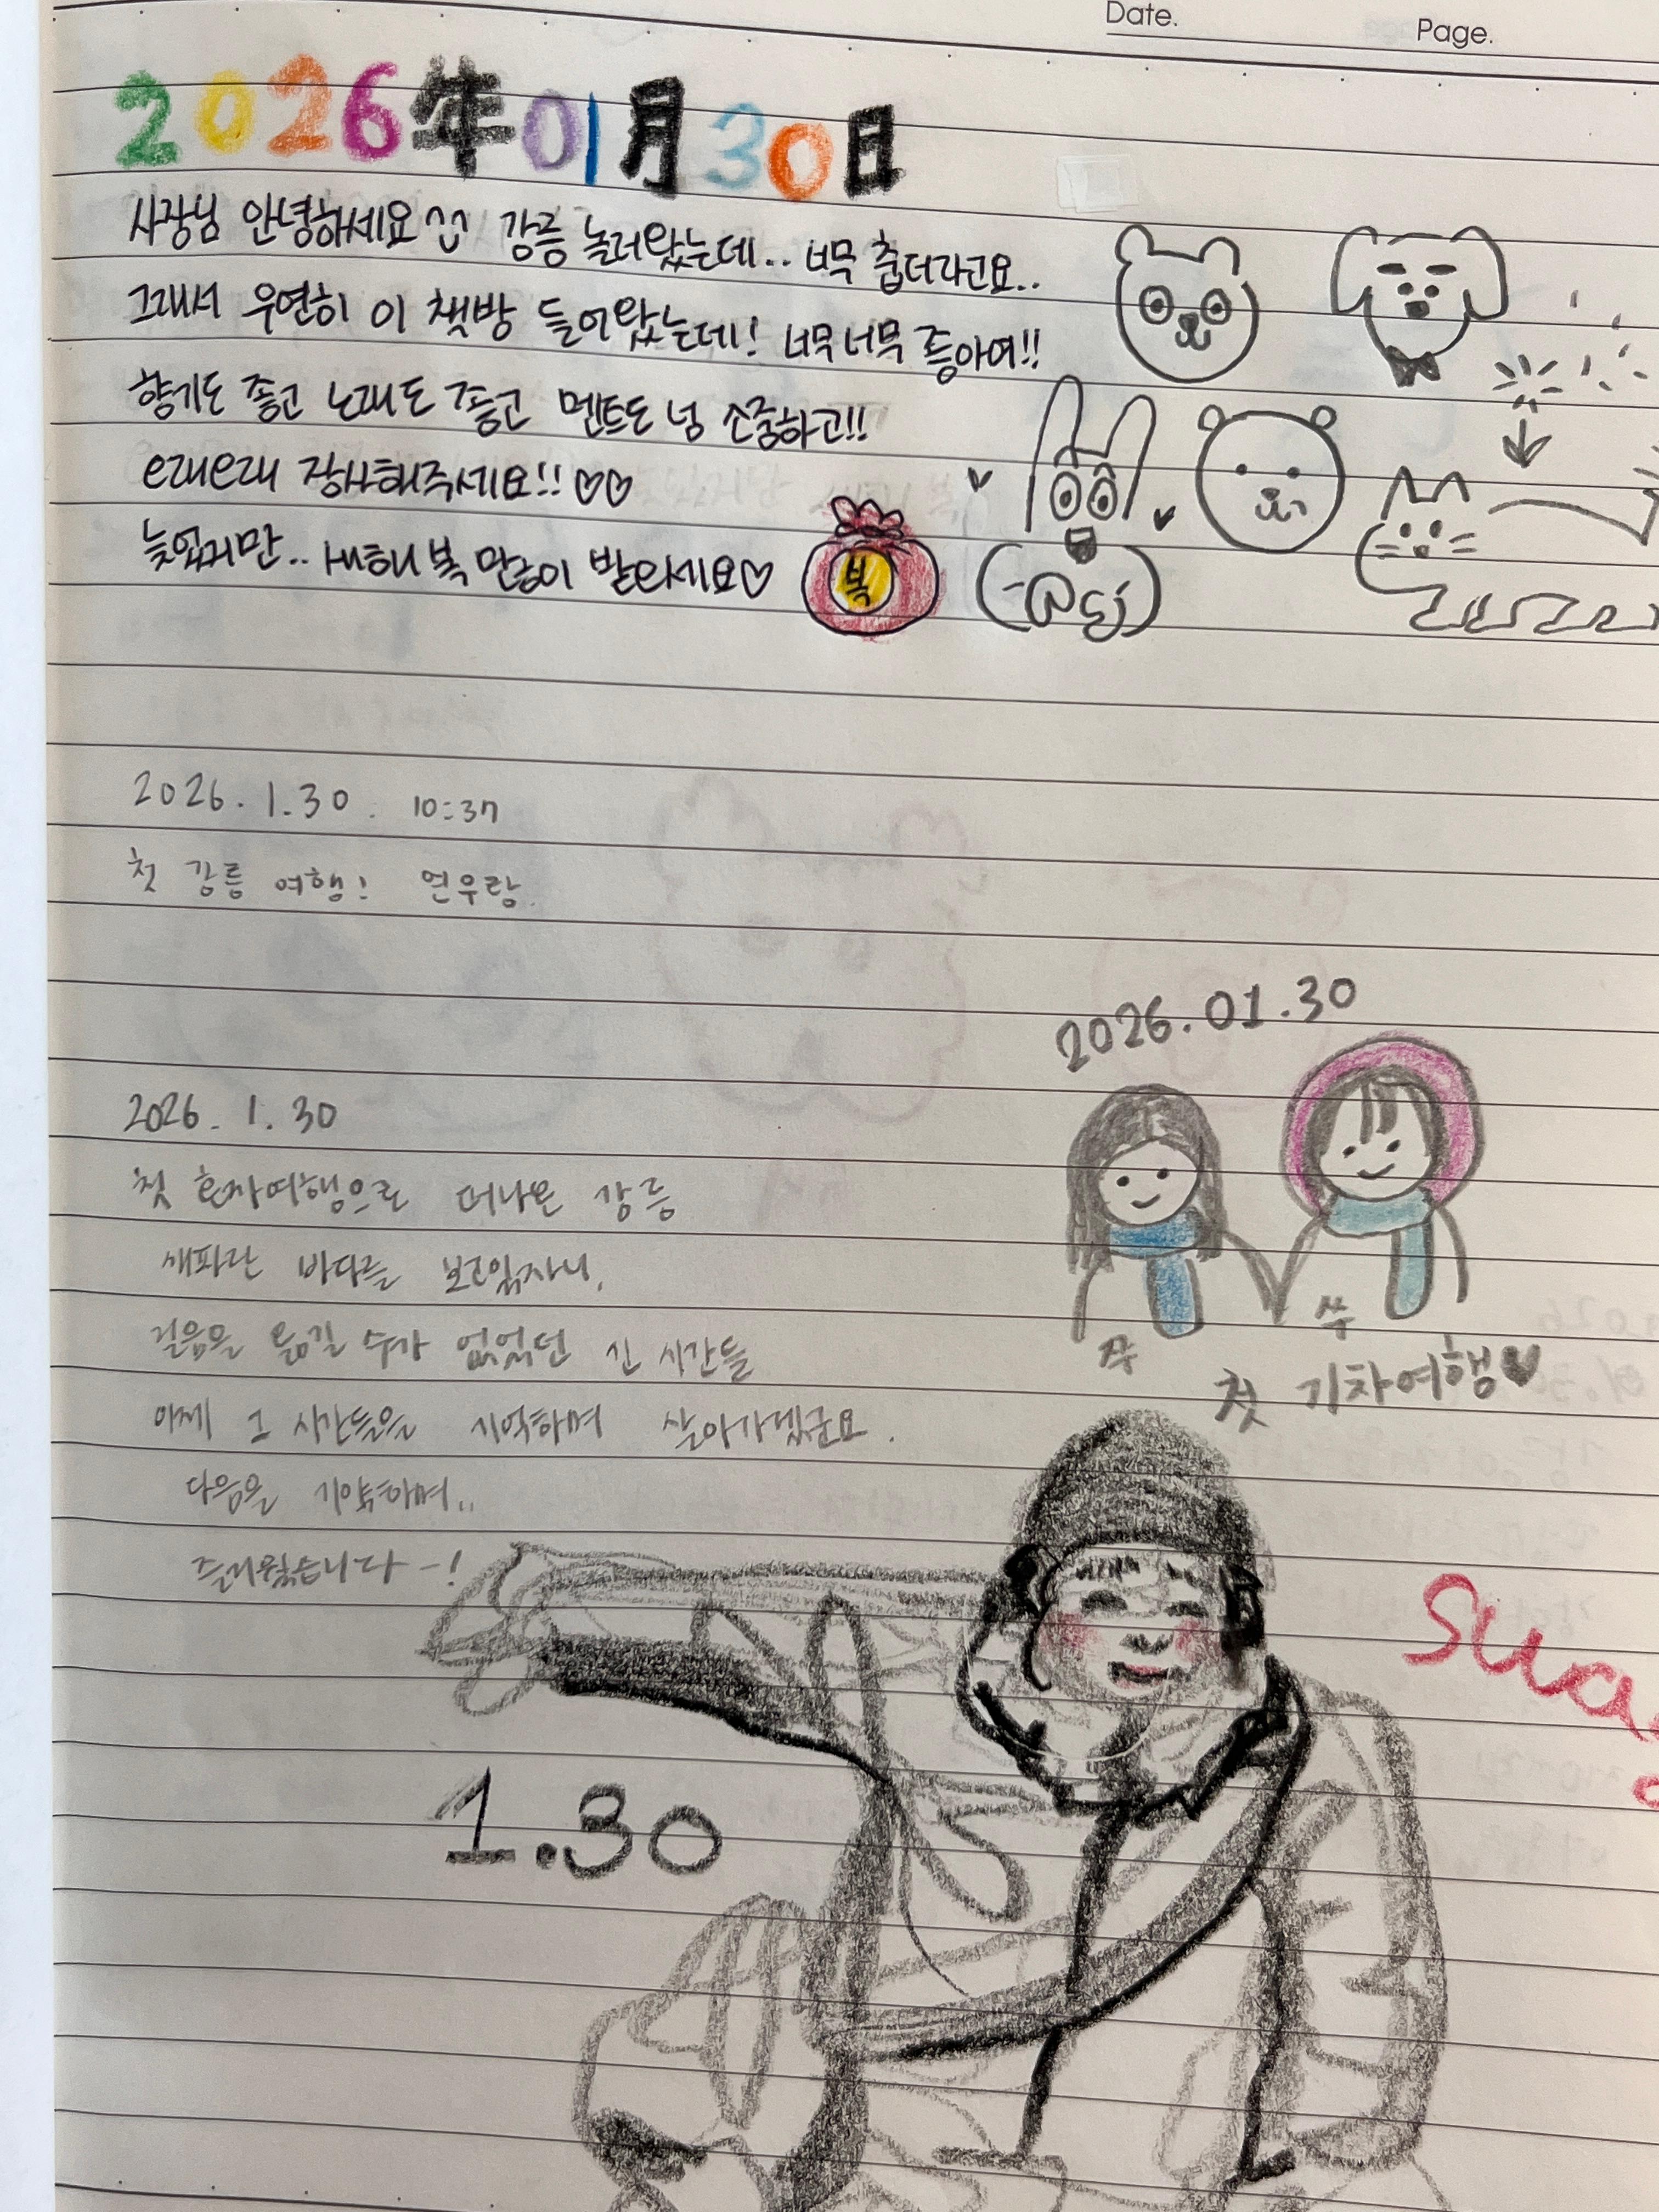 Date. Page.
2026年01月30日
사장님 안녕하세요 강릉 놀러왔는데.. 너무 춥더라고요..
그래서 우연히 이 책방 들어왔는데! 너무너무 좋아여!!
향기도 좋고 노래도 좋고 멘트도 넘 소중하고!!
오래오래 장사해주세요!! ♡♡
늦었지만.. 새해 복 많이 받으세요♡
복
2026. 1. 30. 10:37
첫 강릉 여행! 연우랑
2026.01.30
쑤
첫 기차여행♥
2026. 1. 30
첫 혼자여행으로 떠나온 강릉
새파란 바다를 보고있자니,
걸음을 옮길 수가 없었던 긴 시간들
이제 그 시간들을 기억하며 살아가겠군요.
다음을 기약하며..
즐거웠습니다-!
1.30